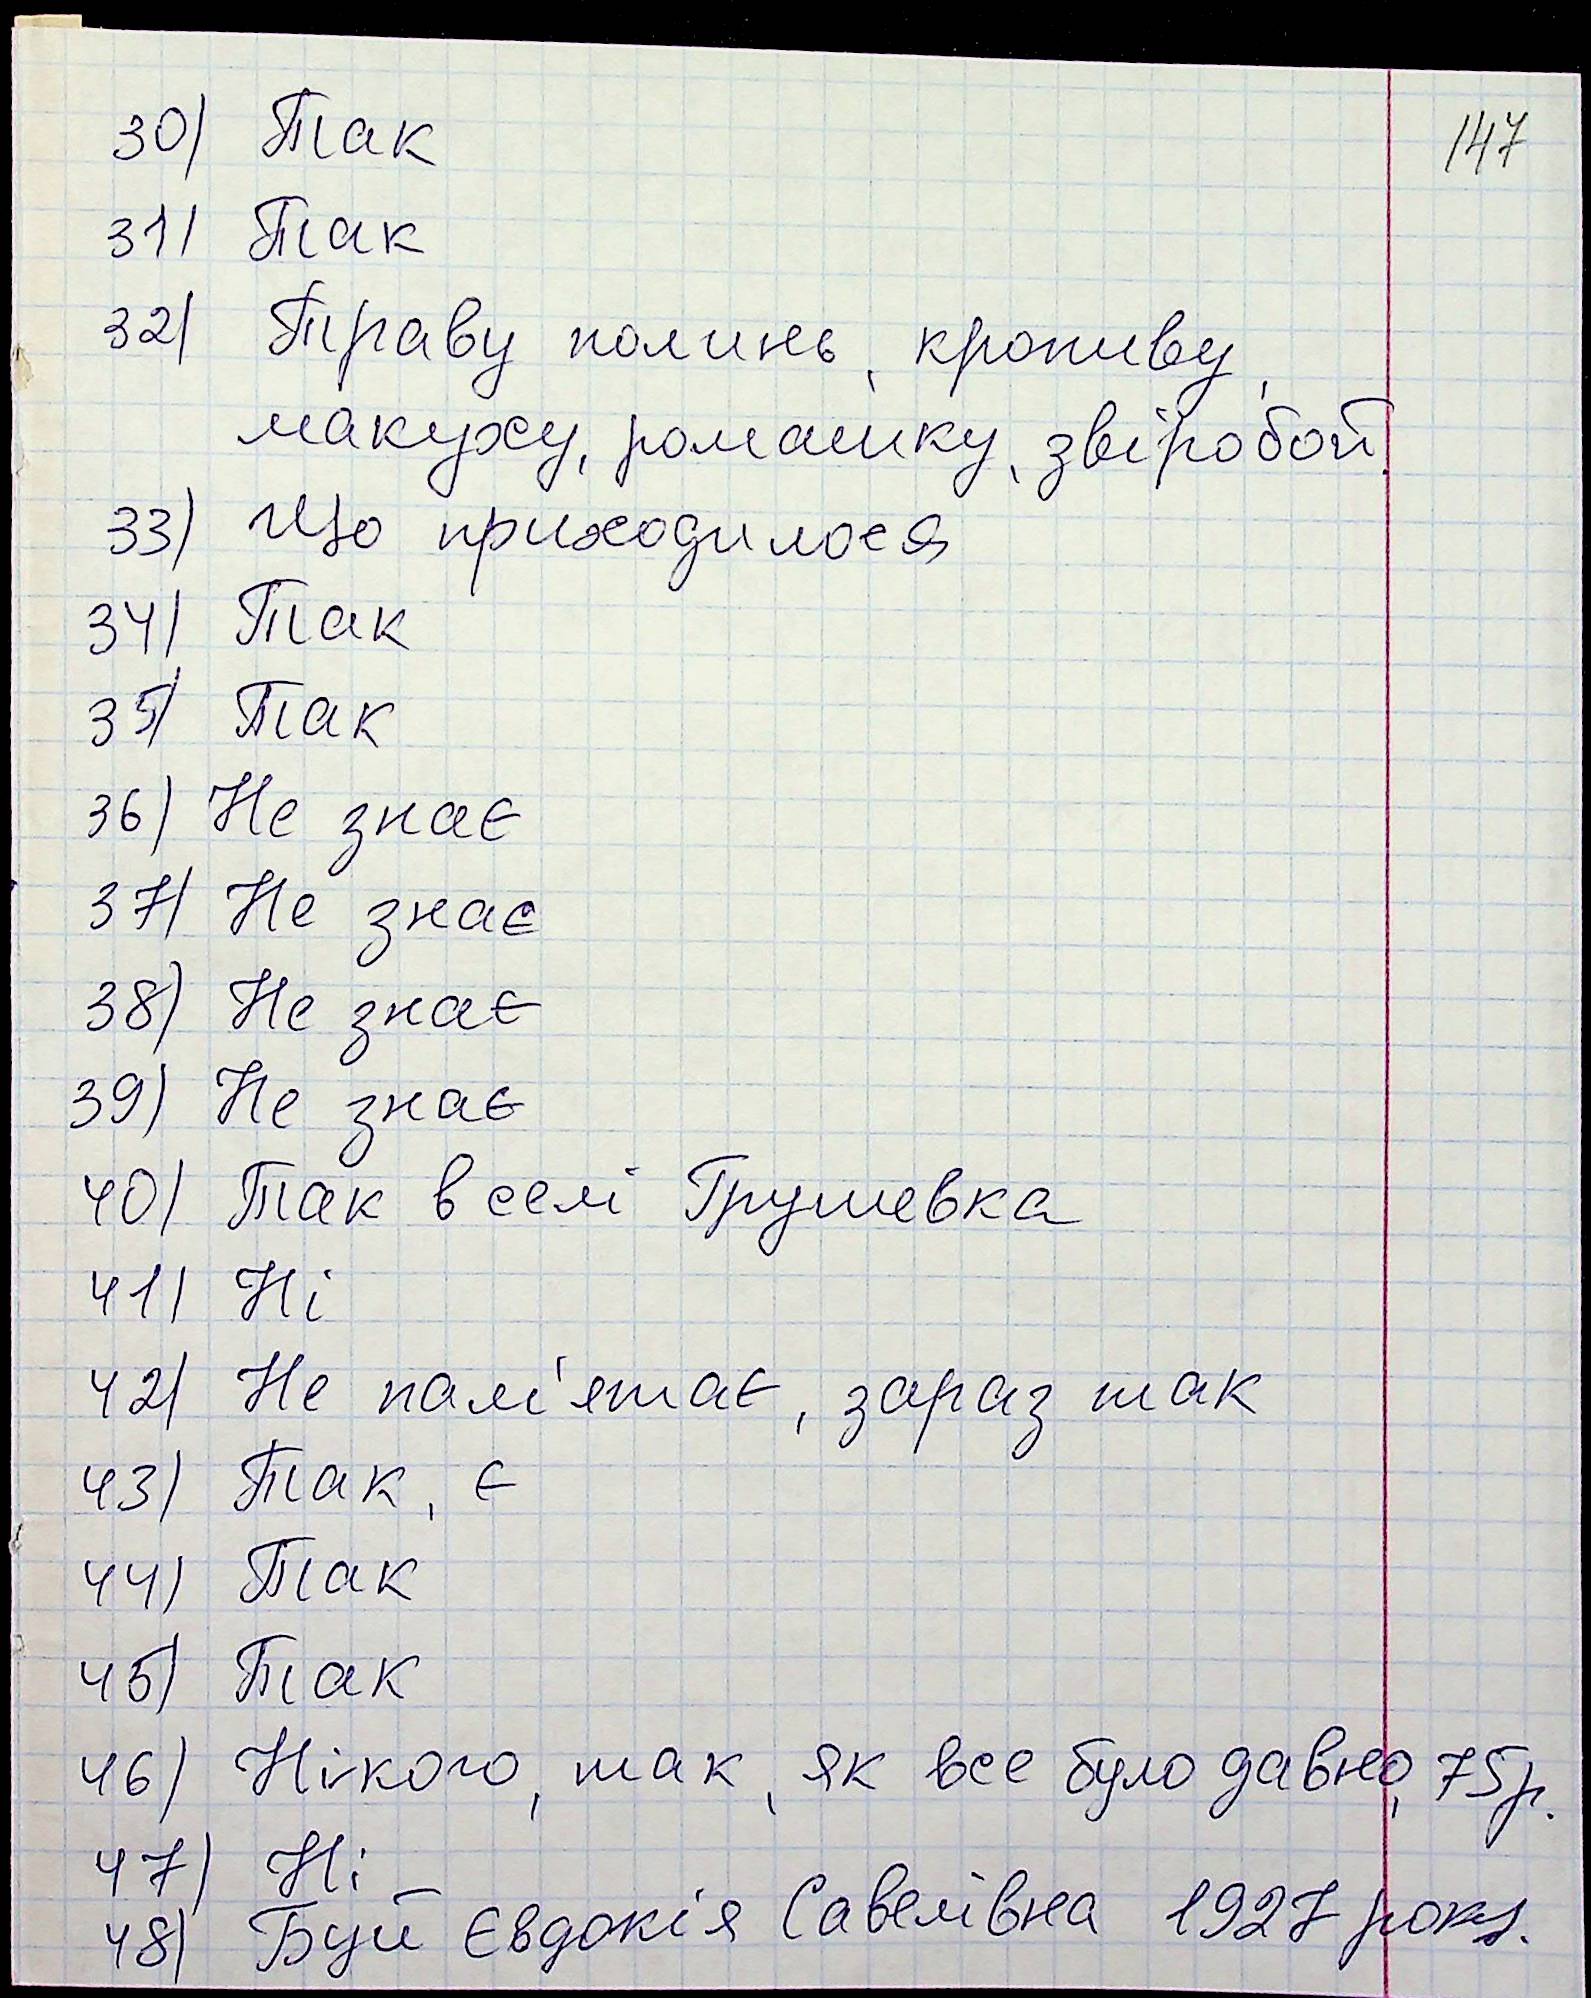 147
30) Так
31) Так
32) Траву полинь, кропиву,
макуху, ромашку, звіробой.
33) Що приходилося
34) Так
35) Так
36) Не знає
37) Не знає
38) Не знає
39) Не знає
40) Так в селі Грушевка
41) Ні
42) Не пам'ятає, зараз так
43) Так, є
44) Так
45) Так
46) Нікого, так, як все було давно, 75р.
47) Ні
48) Буй Євдокія Савелівна 1927 року.